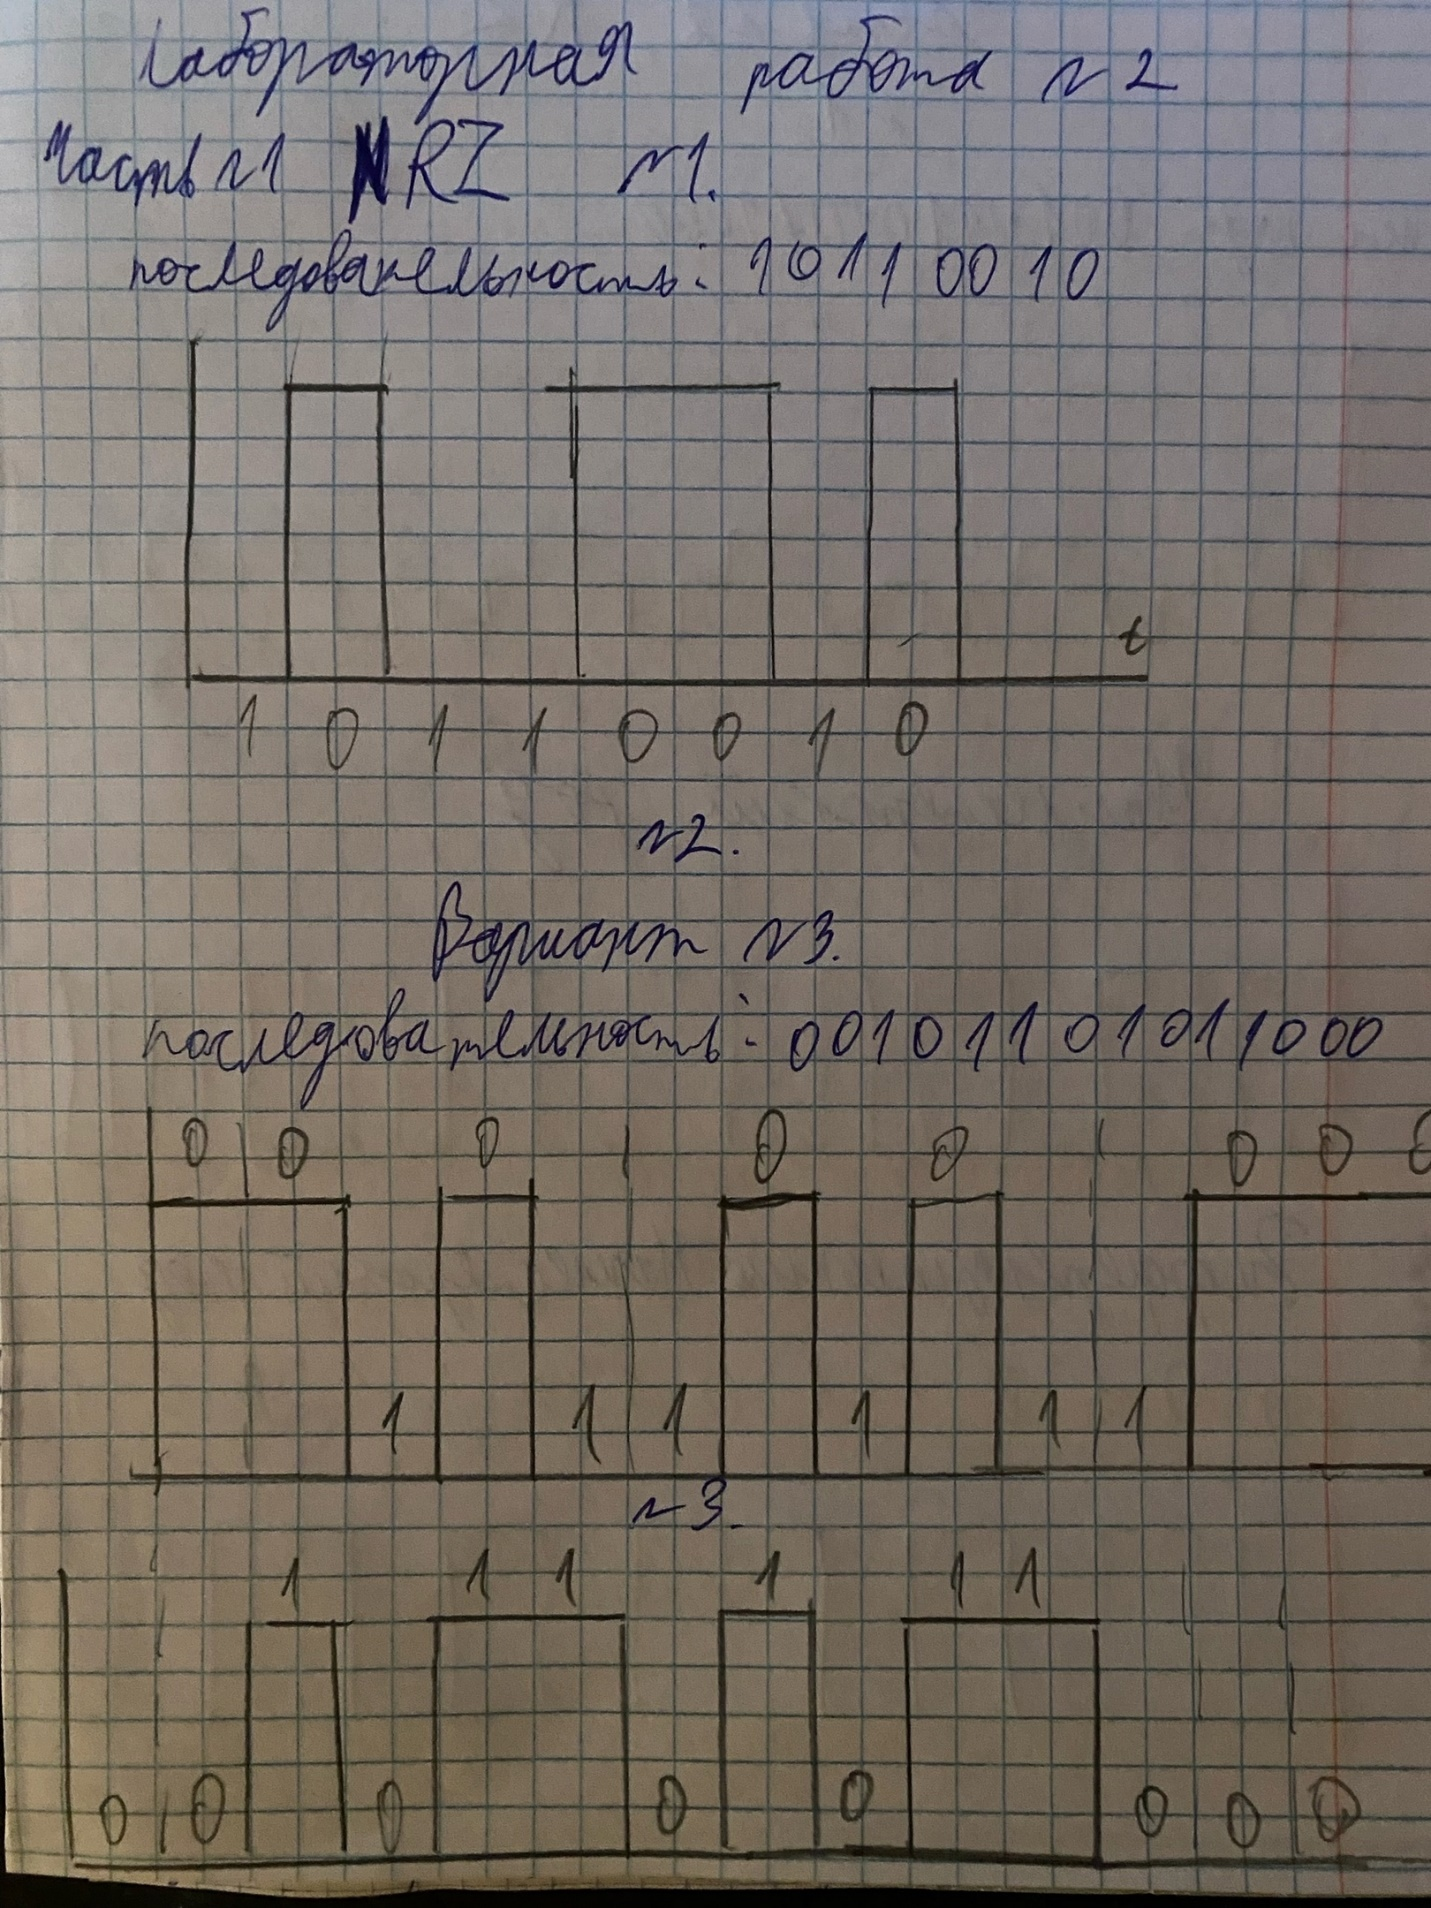 Лабораторная работа №2
Часть №1 NRZ №1.
последовательность: 10110010
t
1 0 1 1 0 0 1 0
№2.
Вариант №3.
последовательность: 00101101011000
0 0 0 0 0 0 0 0
1 1 1 1 1 1
№3.
1 1 1 1 1 1
0 0 0 0 0 0 0 0